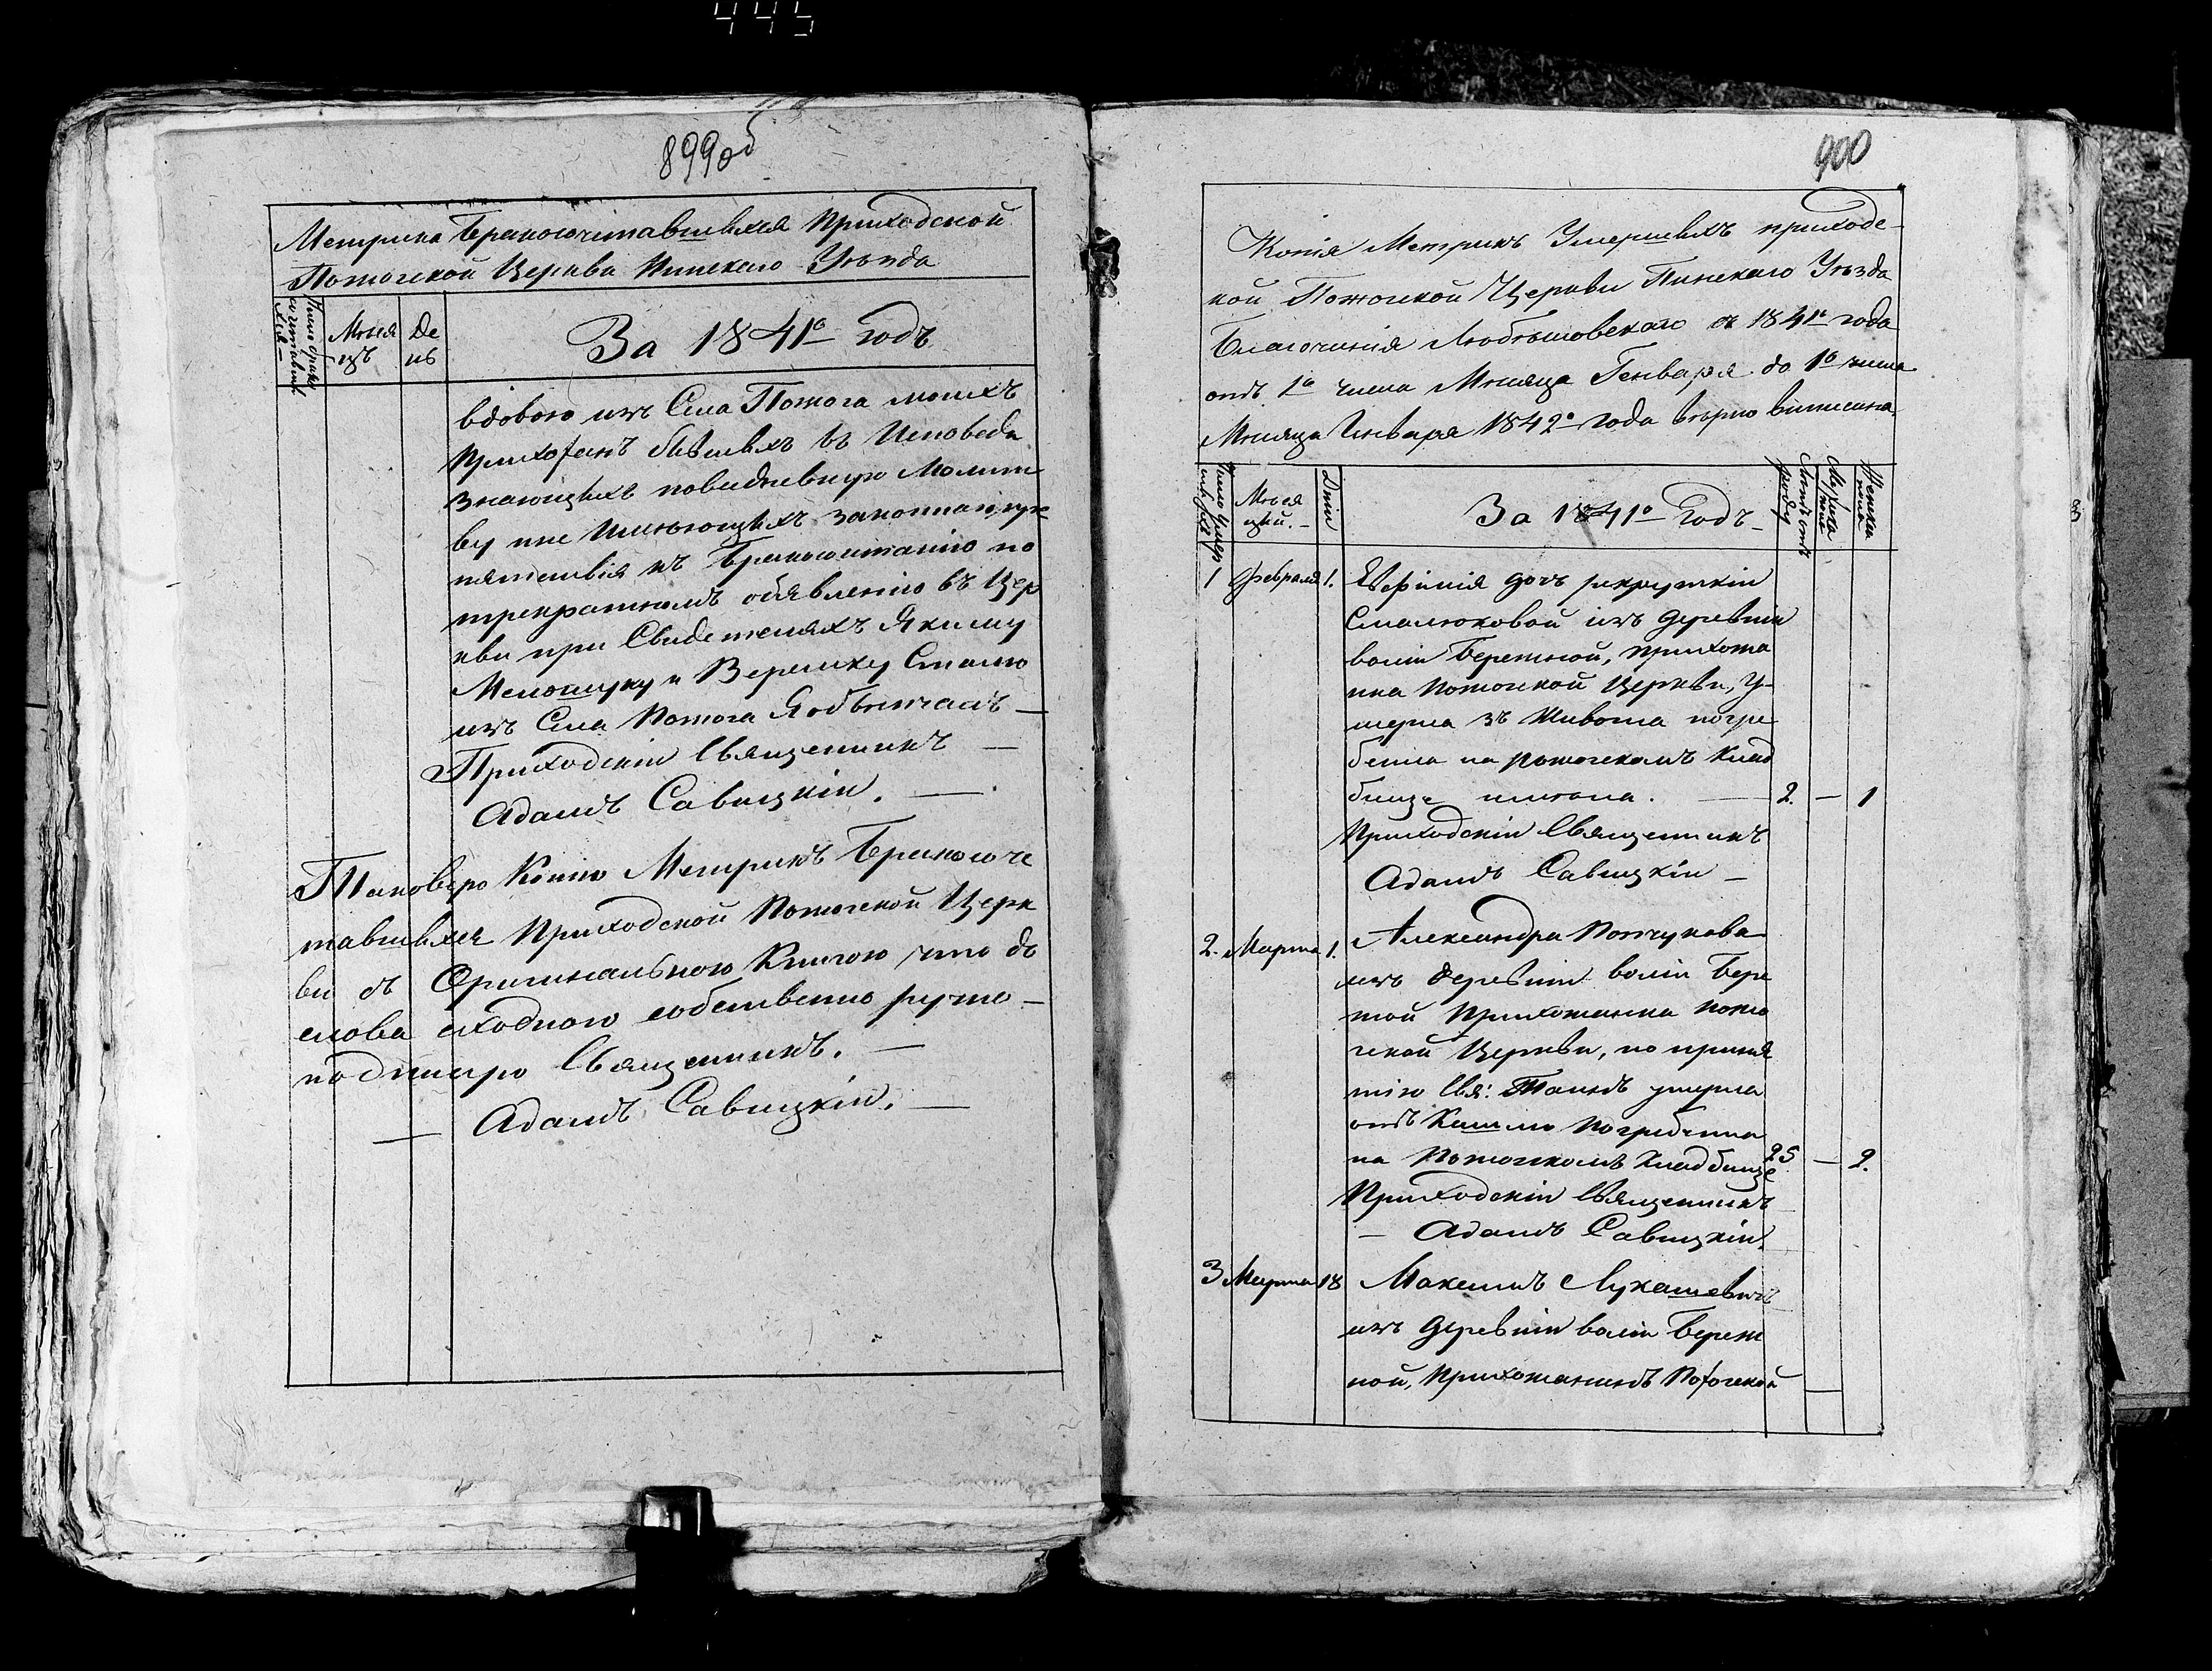 445
899об
Метрика бракосочитавшвхся Приходской
Пожогской Церкви Пинскаго Уезда
Число брако
сочитавшв
хся
Месяцъ
День
За 1841го Годъ
вдовою изъ Села Пожога моихъ
Прихожанъ бывшвхъ въ Исповеди
знающвхъ повидневную Молит
ву нне Имеющвхъ законнаго пре
пятствія къ бракосочитанію по
трекратномъ объявленію въ Цер
кви при Свидетеляхъ Якиму
и Веремку
изъ Села Пожога Я обвенчалъ —
Приходскін Священникъ —
Адамъ Савицкін. —
Таковую Копію Метрикъ Бракосоче
тавшвхся Приходской Пожогской Церк
ви съ Оригинальною Книгою что до
слова сходною собственно ручно —
подпишую Священникъ. —
— Адамъ Савицкін. —
900
Копія Метрикъ Умершвхъ приходс
кой Пожогской Церкви Пинскаго Уезда
Благочинія Любешовскаго съ 1841го года
отъ 1го числа Месяца Генваря до 1го числа
Месяца Генваря 1842го года верно виписана
Число умер
швхъ
Месяцы. —
Дніи
За 1841го Годъ —
Летъ отъ
роду
Мужска
пола
Женска
пола
1 Февраля 1. Евфимія дочъ рекруткін
Смалюховой изъ деревніи
воліи Бережной, прихожа
нка Пожогской Церкви, у-
мерла зъ Живота погре
бенна на Пожогскомъ Клад
бищe 2. — 1
Приходскін Священникъ
Адамъ Савицкін —
2. Марта 1. Александра
изъ деревніи воліи Бере
жной Прихожанка Пожо
гской Церкви, по приня
тію Свя: Таинъ умерла
отъ Кашлю Погребенна
на Пожогскомъ Кладбище 25 — 2.
Приходскін Священникъ
— Адамъ Савицкін.
3 Марта 18 Максимъ Лукашевичъ
изъ деревніи воліи Береж
ной, Прихожанинъ Пожогской